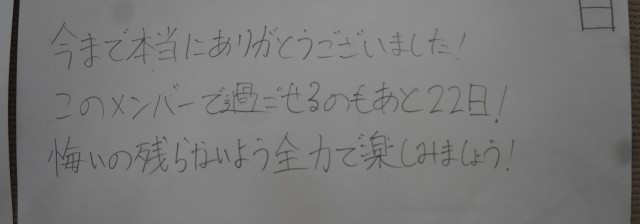 日
今まで本当にありがとうございました!
このメンバーで過ごせるのもあと22日!
悔いの残らないよう全力で楽しみましょう!